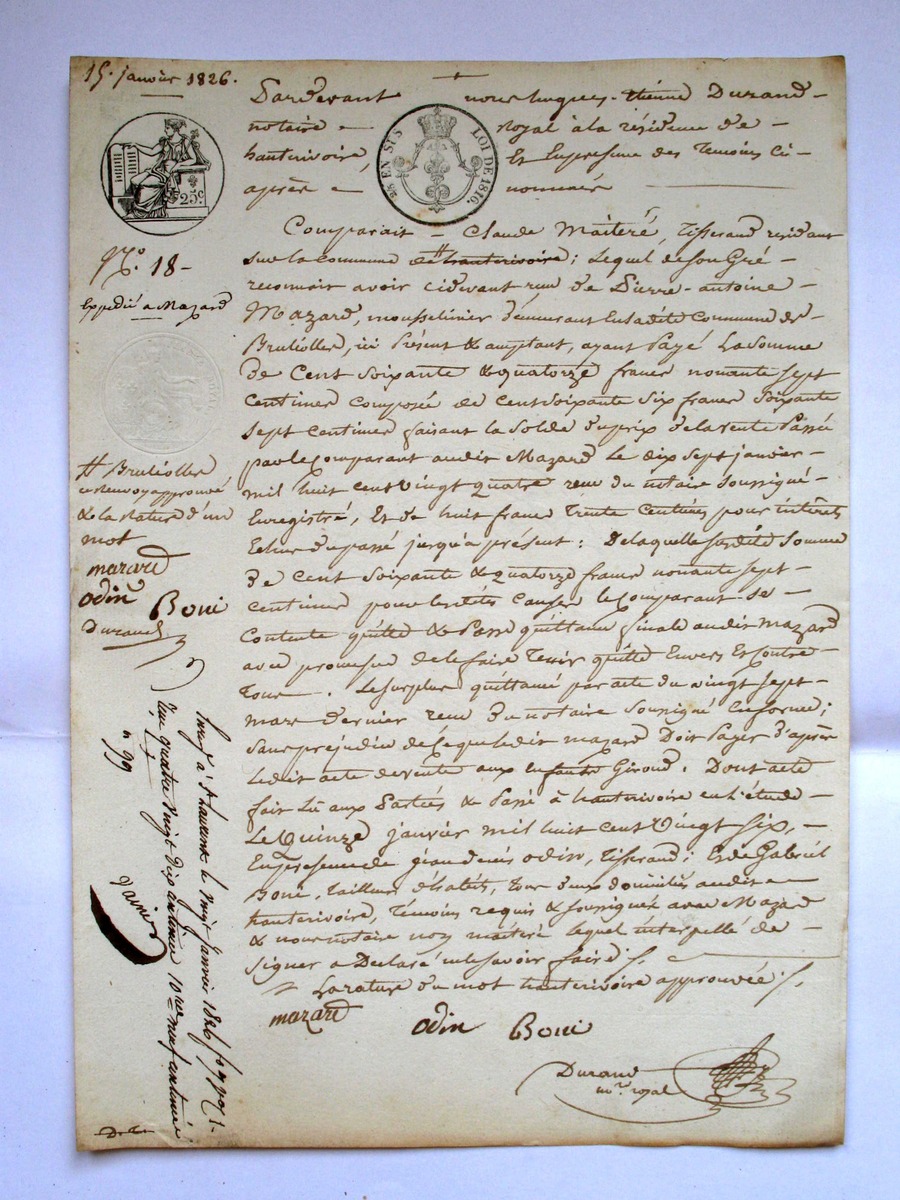 15. janvier 1826.
Pardevant nous hugues-étienne Durand
notaire royal à la résidence de
hauterivoire, Et En présence des témoins Ci-
après nommés
25 EN SUS LOI DE 1816.
25c
Comparait Claude Maiteré, Tisserand résidant
sur la commune de # hauterivoire; Lequel de son Gré
reconnait avoir cidevant reçu de Pierre-antoine
Mazard, mousselinier demeurant En ladite Commune de
Bruliolles, ici Présent & acceptant, ayant Payé La Somme
de Cent Soixante & quatorze francs nonante sept
Centimes Composée de Cent soixante six francs Soixante
sept Centimes faisant la Solde du prix de la vente Passée
par le Comparant audit Mazard Le dix sept janvier
mil huit cent vingt quatre reçu du notaire soussigné
Enregistré, Et de huit francs Trente Centimes pour intérêts
Echus du passé jusqu'à présent: De laquelle susdite Somme
de Cent Soixante & quatorze francs nonante sept
Centimes pour lesdites Causes le Comparant se
Contente quitte & Passe quittance finale audit Mazard
avec promesse de le faire Tenir quitte Envers Et Contre
Tous. Le surplus quittancé par acte du vingt sept
mars dernier reçu du notaire soussigné En forme;
Sans préjudice de Ce que ledit mazard Doit Payer d'après
Ledit acte de vente aux Enfants Giroud. Dont acte
fait Lu aux Parties & Passé à hauterivoire en L'étude
Le Quinze janvier mil huit Cent Vingt Six,
En présence de jean denis odin, Tisserand; Et de Gabriel
Boni, Tailleur d'habits, Tous deux domiciliés audit
hauterivoire, Témoins requis & soussignés avec Mazard
& nous notaire non maiteré lequel interpellé de
signer a Déclaré ne le savoir faire /.
La rature du mot hauterivoire approuvée /.
mazard
odin Boni
Durand
nre royal
No. 18
Expédié a Mazard
# Bruliolles
ce renvoy approuvé
& la rature d'un
mot
mazard
odin Boni
Durand
Enregé à St Laurent le vingt janvier 1826 fo
Un quatre vingt dix centimes 10me neuf centimes
n 99